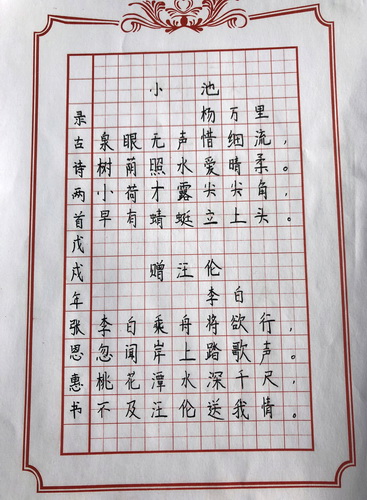 小池
杨万里
泉眼无声惜细流，
树荫照水爱晴柔。
小荷才露尖尖角，
早有蜻蜓立上头。
赠汪伦
李白
李白乘舟将欲行，
忽闻岸上踏歌声。
桃花潭水深千尺，
不及汪伦送我情。
录古诗两首戊戌年张思惠书